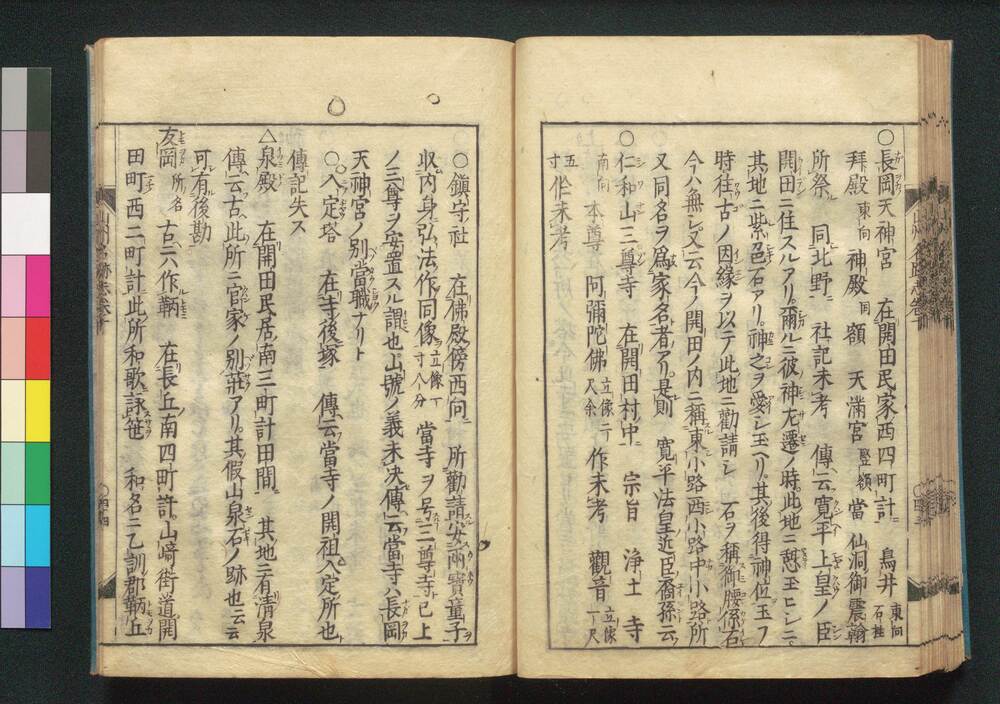 ○長岡天神宮　在開田民家西四町計ニ　鳥井 東向石柱
拜殿 東向 神殿 同 額　天滿宮 竪額 當　仙洞御震翰
所祭ル　同北野ニ　社記未考　傳ヘ云寛平上皇ノ臣
開田ニ住スルアリ爾ルニ彼神左遷ノ時此地ニ憩玉ヒシニ
其地ニ紫邑石アリ神之ヲ愛シ玉ヘリ其後得神位玉フ
時往古ノ因縁ヲ以テ此地ニ勸請シ　石ヲ稱御腰係石
今ハ無シ又云今ノ開田ノ内ニ稱東小路西小路中小路所
又同名ヲ爲家名者アリ是則　寛平法皇近臣裔孫云云
○仁和山三尊寺　在開田村中ニ　宗旨　浄土　寺
南向　本尊　阿彌陀佛 立像二尺余 作未考　觀音 立像一尺
五寸 作未考
○鎭守社　在佛殿傍西向ニ　所勸請ス安兩寶童子ヲ
収内身弘法作同像ヲ 立像一寸八分 當寺ヲ号三尊寺ト已上
ノ三尊ヲ安置スル謂也山號ノ義未決傳云當寺ハ長岡
天神宮ノ別當職ナリト
○入定塔　在寺後塚　傳云當寺ノ開祖入定所也
傳記失ス
△泉殿　在開田民居南三町計田間ニ　其地ニ有清泉
傳云古ヘ此所ニ官家ノ別莊アリ其假山泉石ノ跡也云云
可有後勘
友岡 所名 古ヘ六作鞆　在長丘南四町許ニ山﨑街道開
田町西二町計此所和歌ニ詠笹　和名ニ乙訓郡鞆丘